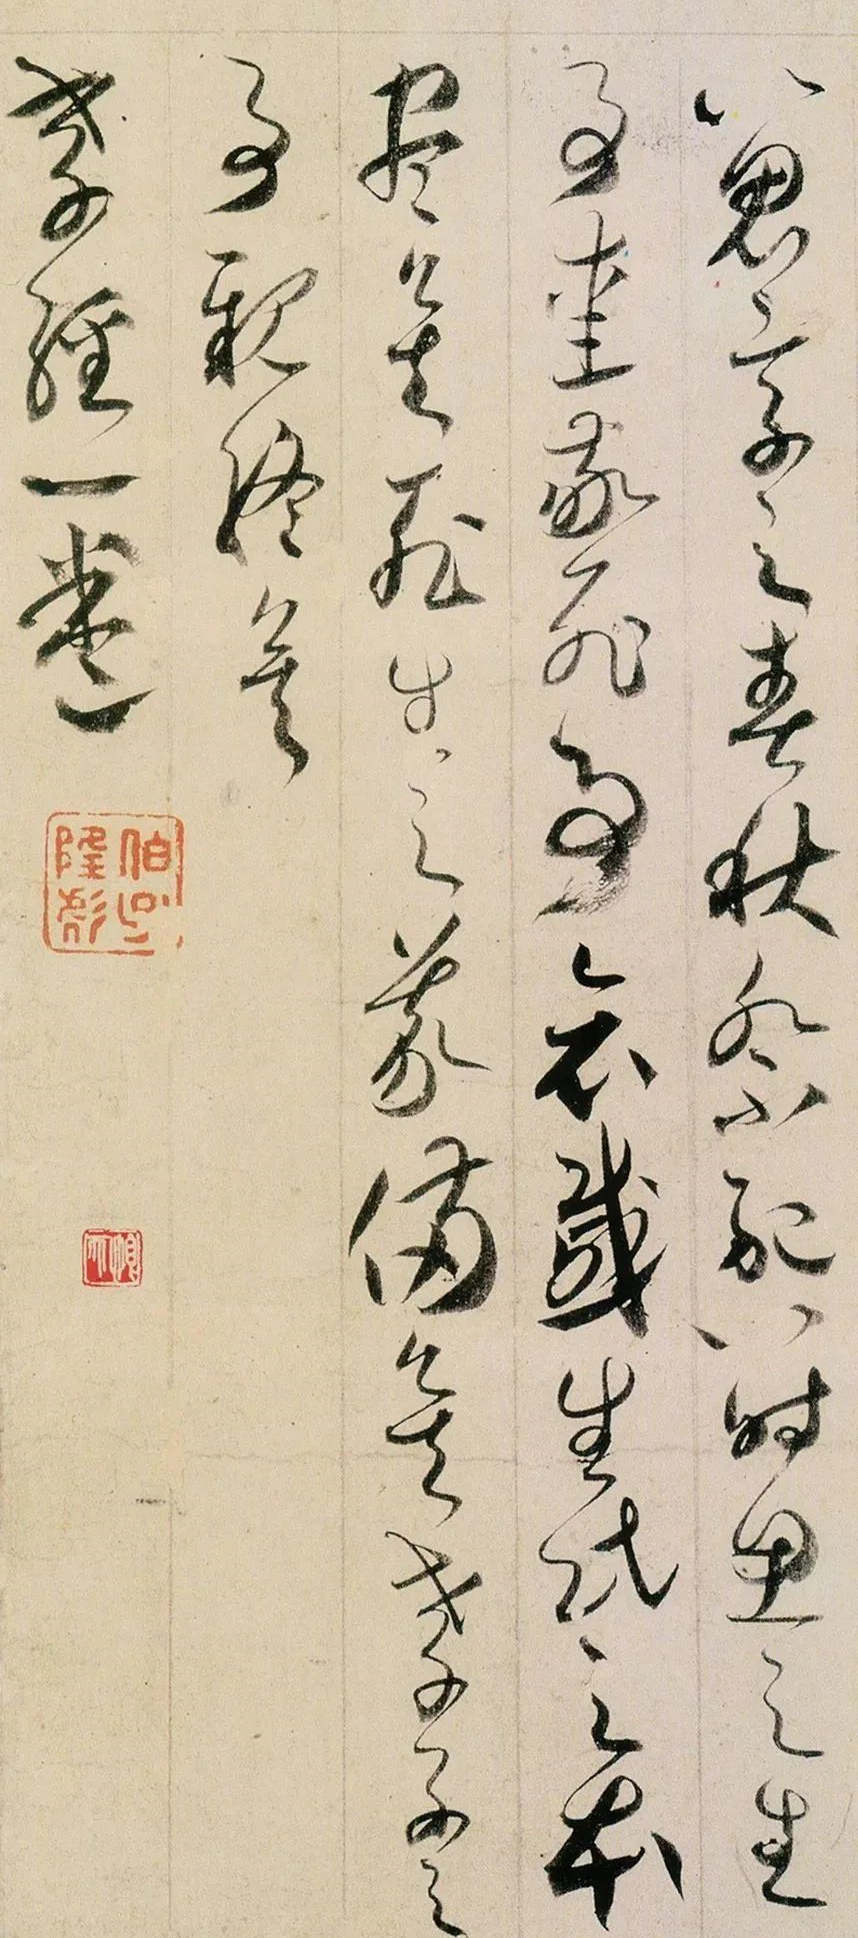 以鬼享之春秋祭祀以時思之生
事愛敬死事哀慼生民之本
盡矣死生之義備矣孝子之
事親終矣
孝經一卷